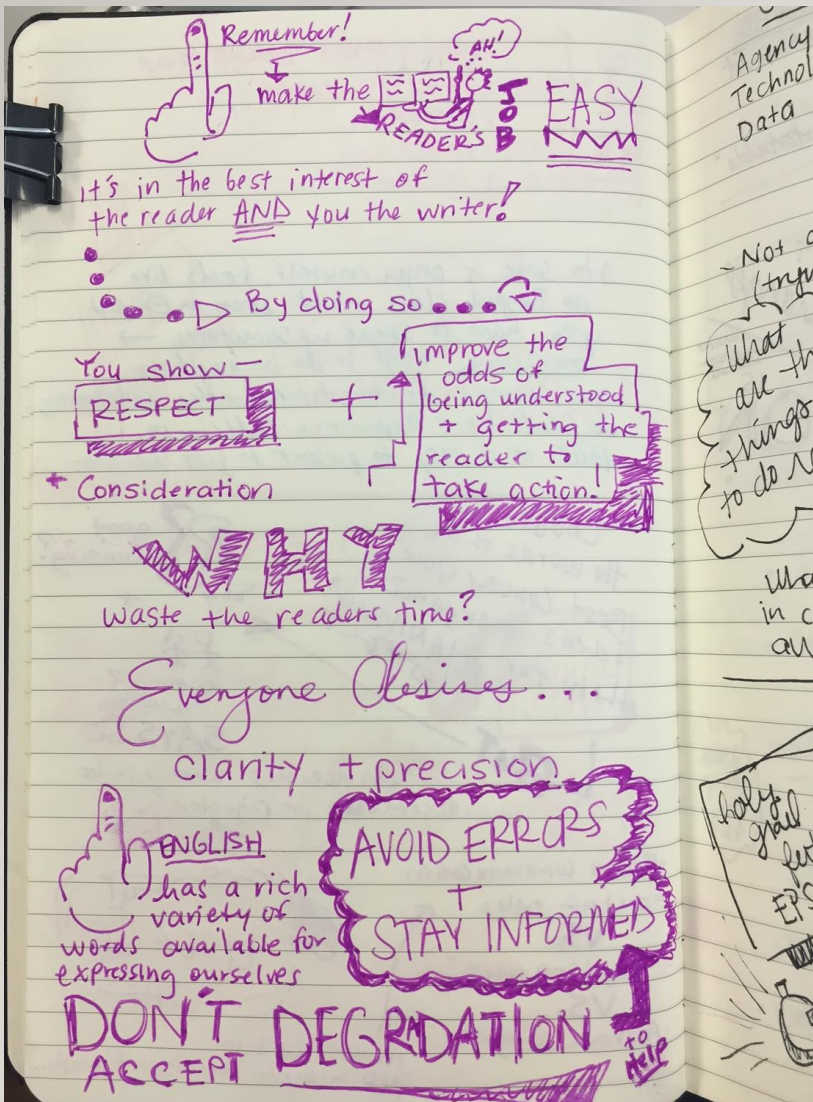 Remember!
make the READER'S JOB EASY
AH!
It's in the best interest of
the reader AND you the writer!
By doing so...
You show –
RESPECT
+ Consideration
+
improve the
odds of
being understood
+ getting the
reader to
take action!
WHY
waste the readers time?
Everyone Desires...
Clarity + precision
ENGLISH
has a rich
variety of
words available for
expressing ourselves
AVOID ERRORS
+
STAY INFORMED
to Help
DON'T
ACCEPT
DEGRADATION
Agency
Technol
Data
- Not
(try
What
are th
things
to do
Wha
in c
au
holy
grail
EPS